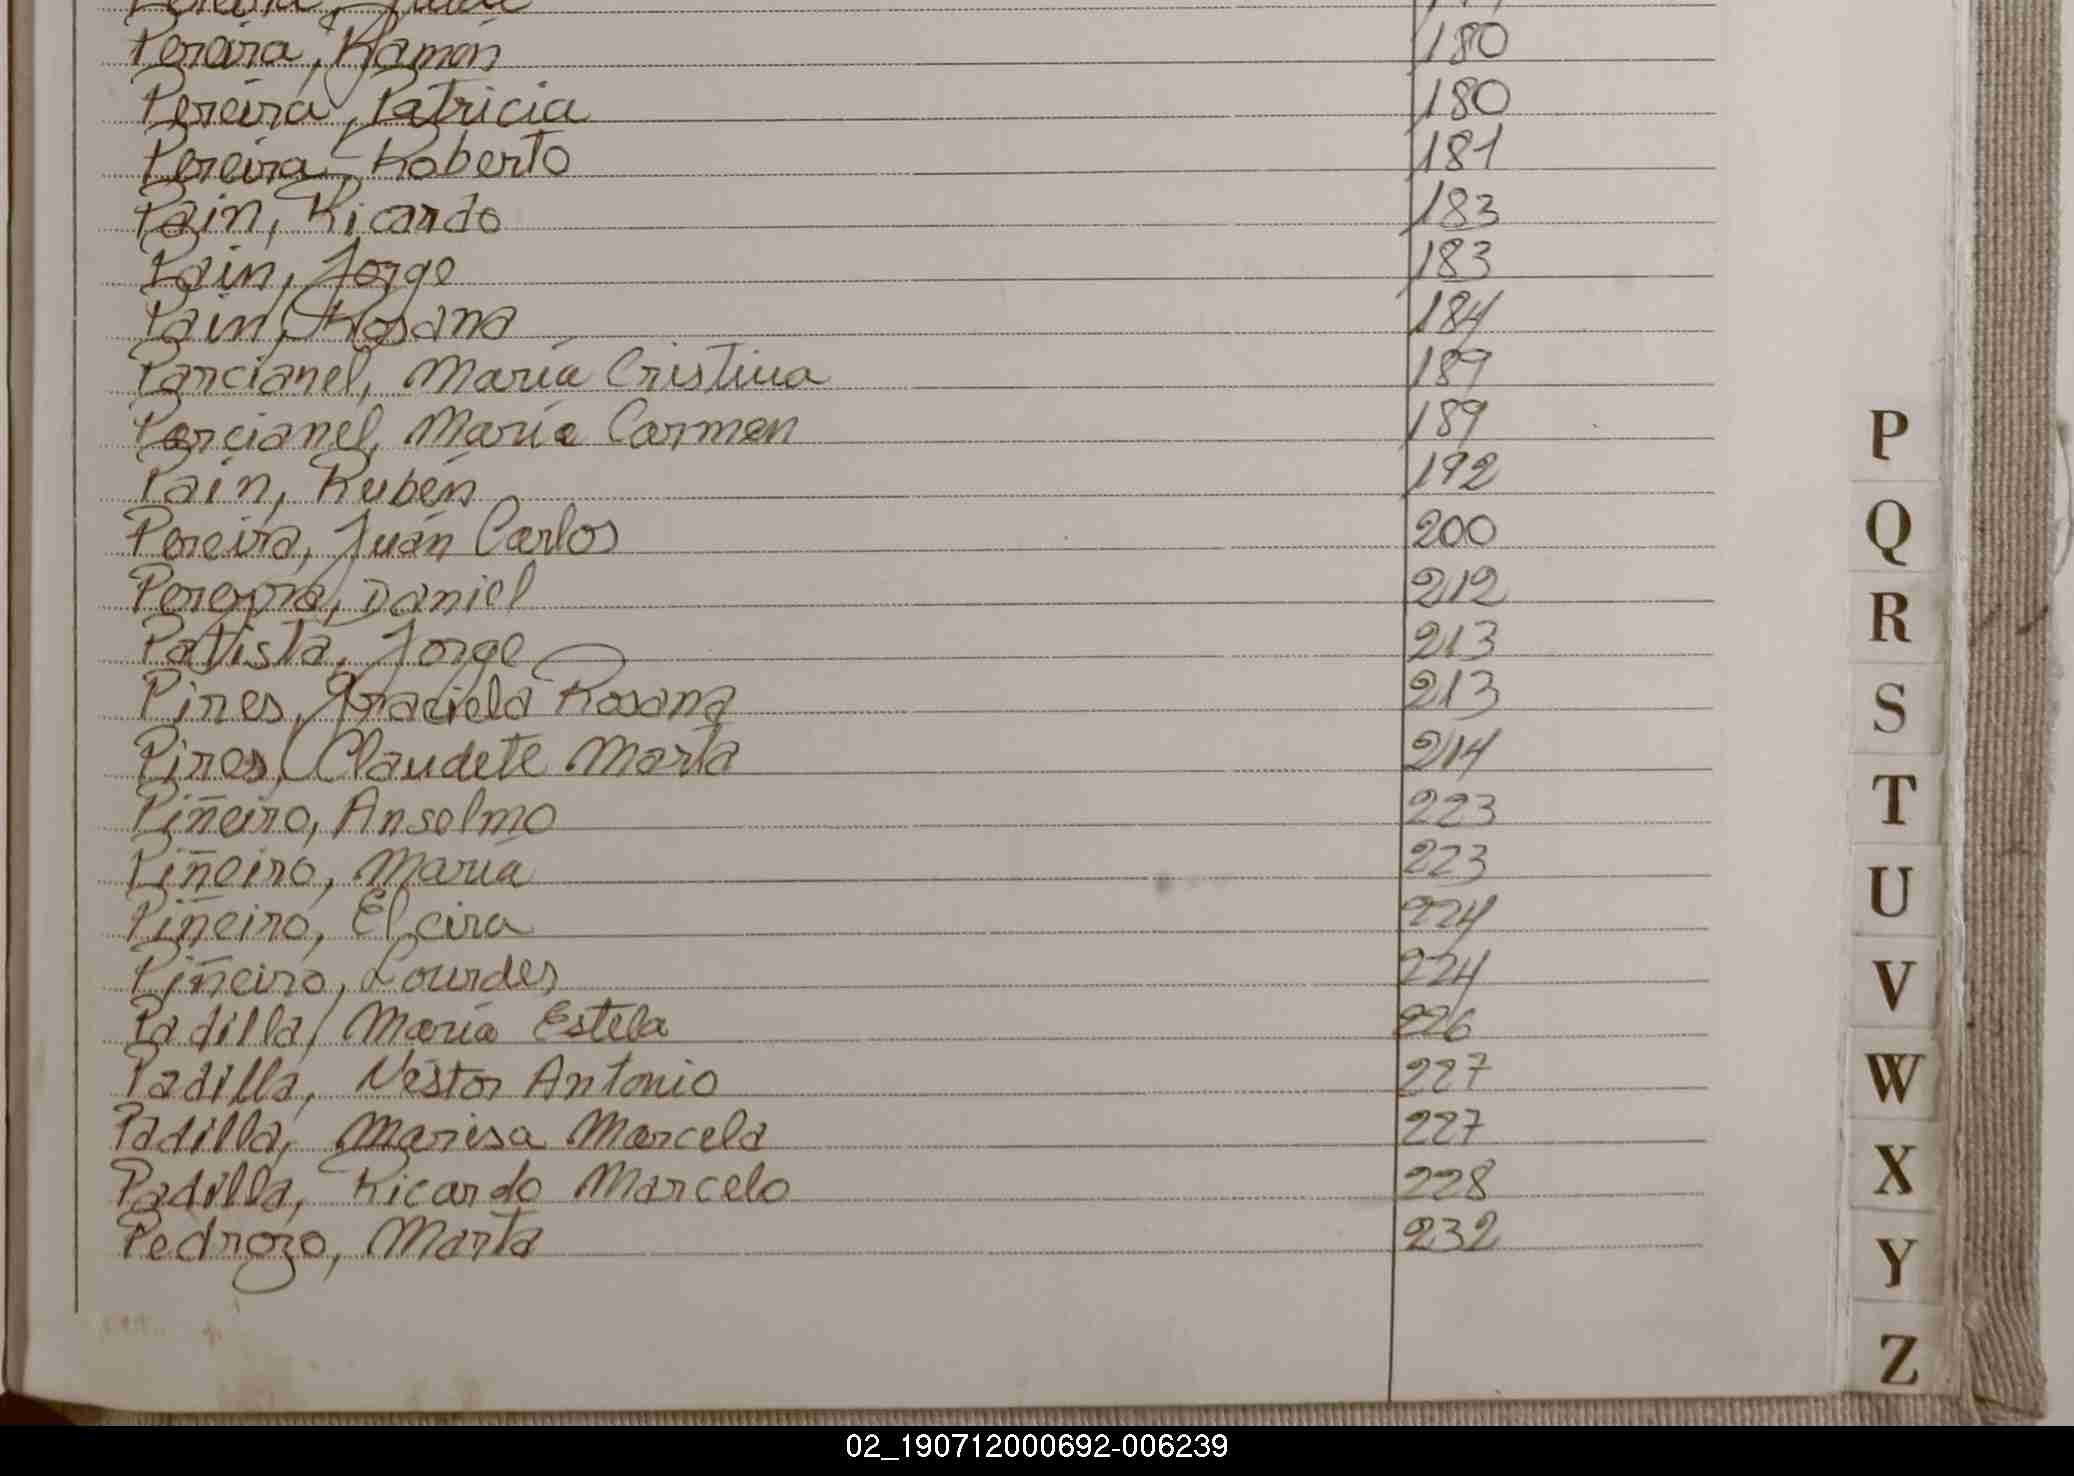 Pereira, Ramón 180
Pereira, Patricia 180
Pereira, Roberto 181
Pain, Ricardo 183
Pain, Jorge 183
Pain, Rosana 184
Parcianel, María Cristina 189
Parcianel, María Carmen 189
Pain, Rubén 192
Pereira, Juán Carlos 200
Pereyra, Daniel 212
Patista, Jorge 213
Pires, Graciela Rosana 213
Pires, Claudete Marta 214
Piñeiro, Anselmo 223
Piñeiro, María 223
Piñeiro, Elcira 224
Piñeiro, Lourdes 224
Padilla, María Estela 226
Padilla, Néstor Antonio 227
Padilla, Mariesa Marcela 227
Padilla, Ricardo Marcelo 228
Pedrozo, Marta 232
P
Q
R
S
T
U
V
W
X
Y
Z
02_190712000692-006239